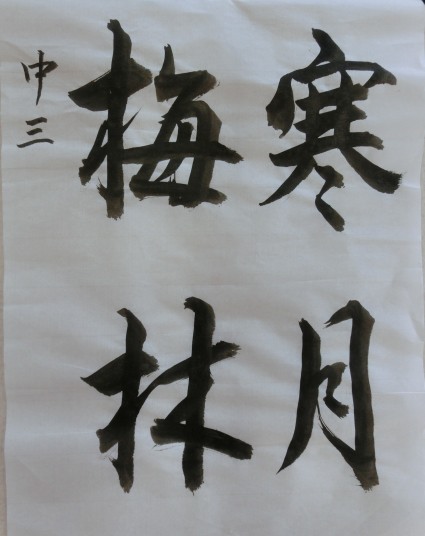 寒月
梅林
中三